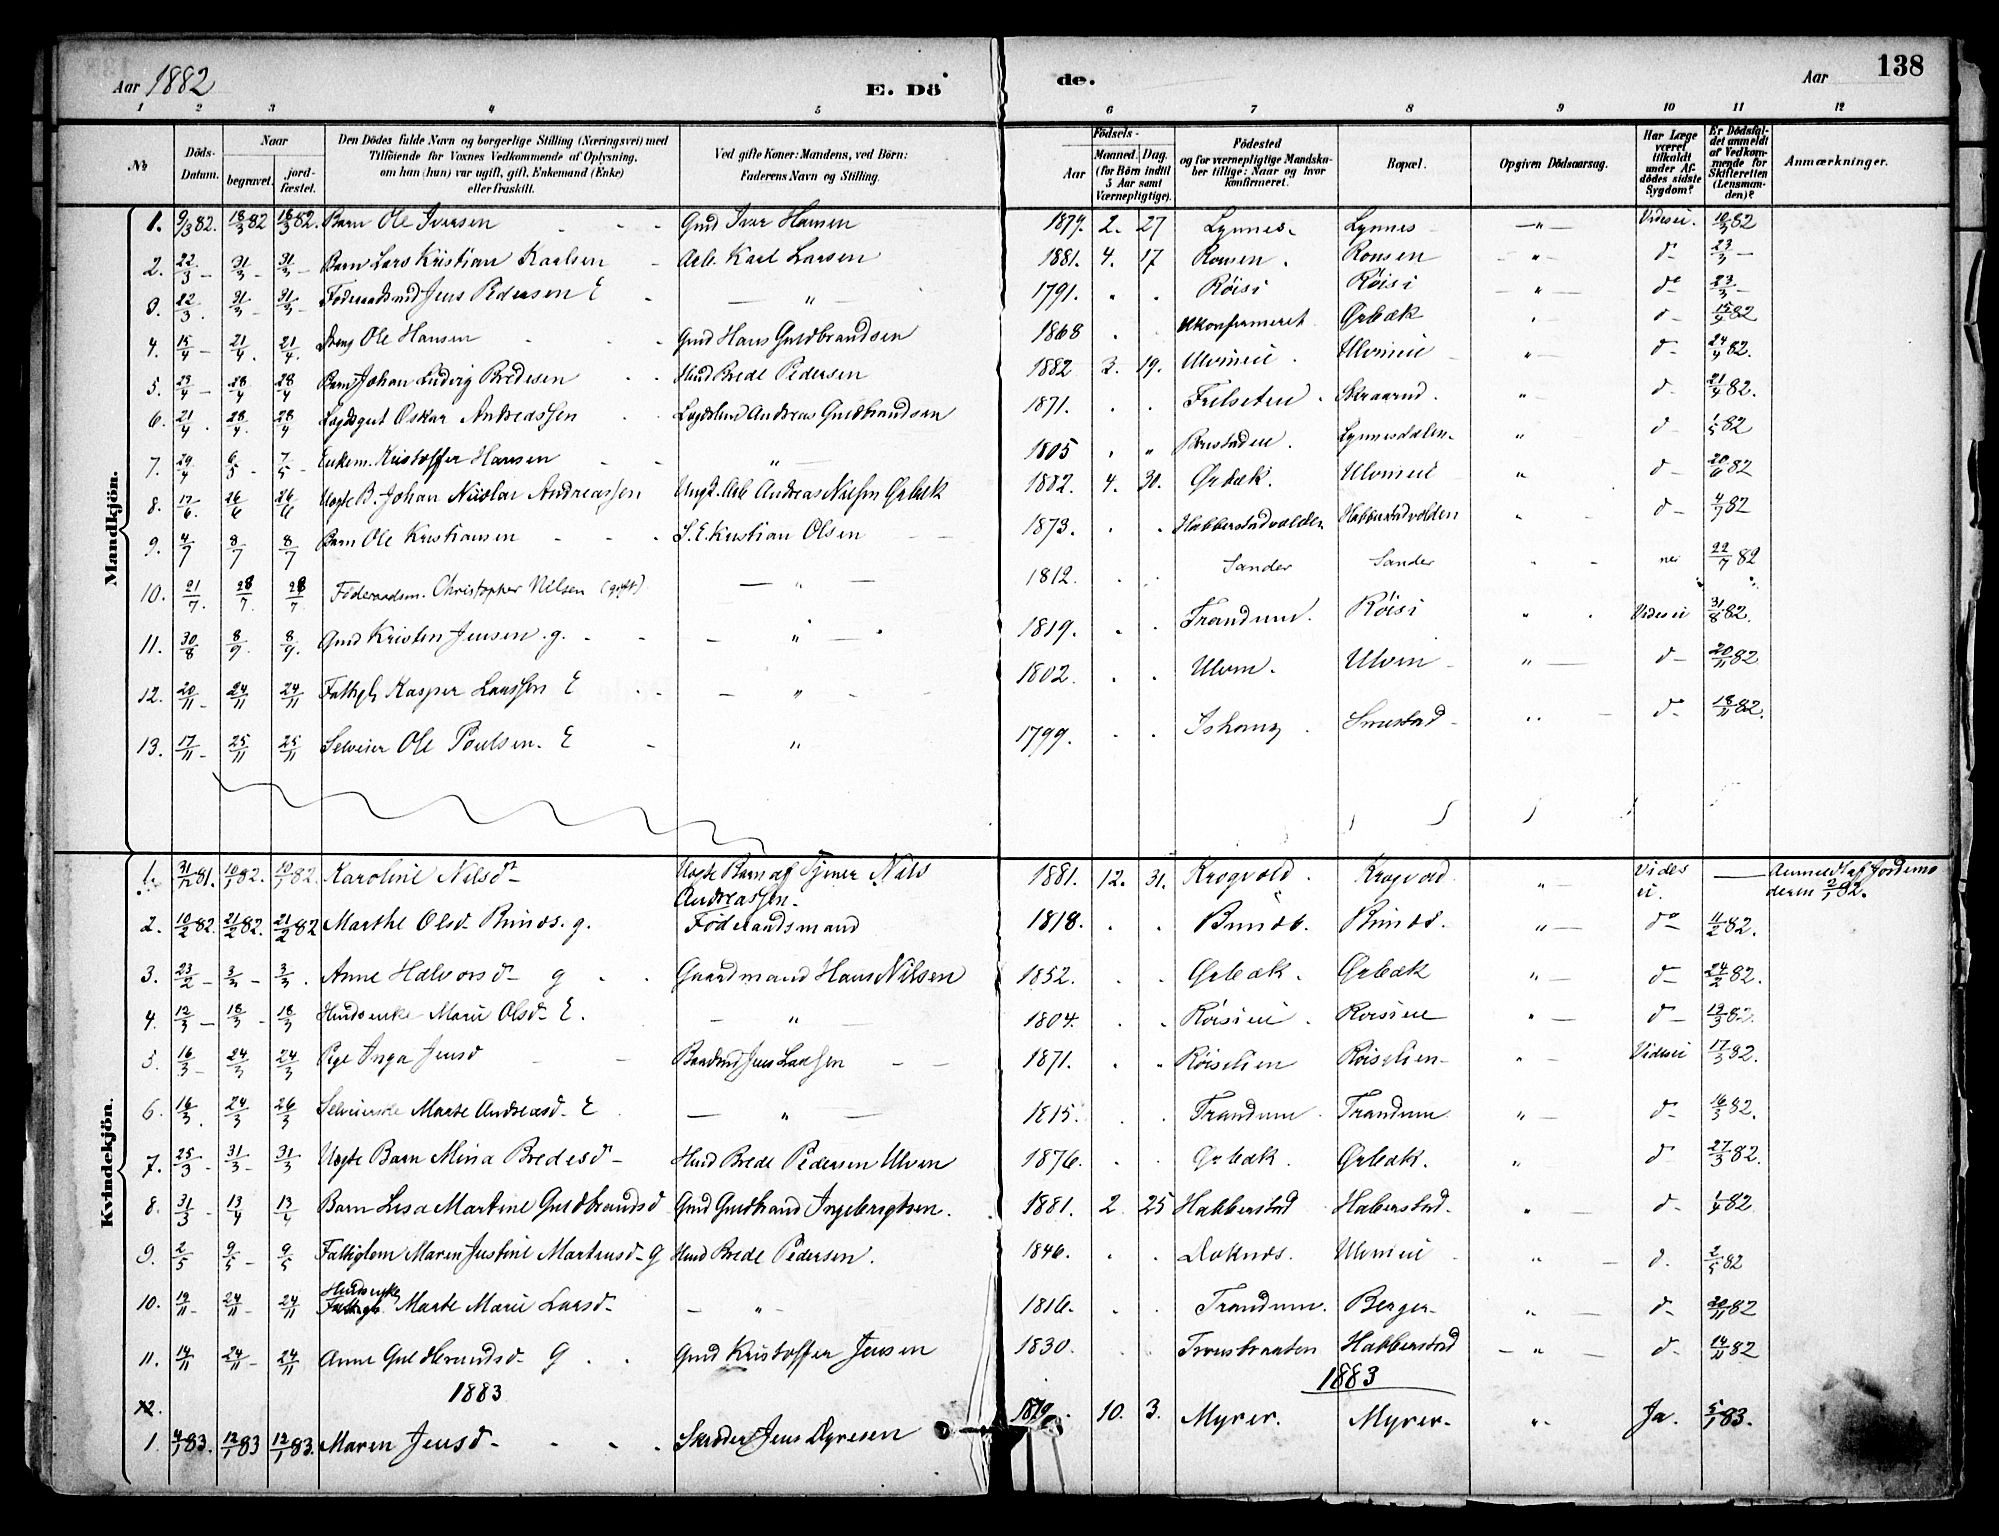 Aar 1882 E. Dö de. Aar 138
1 2 3 4 5 6 7 8 9 10 11 12
№ Döds-Datum. Naar begravet. jordfæstet. Den Dödes fulde Navn og borgerlige Stilling (Næringsvei) med Tilföiende for Voxnes Vedkommende af Oplysning, om han (hun) var ugift, gift, Enkemand (Enke) eller fraskilt. Ved gifte Koner: Mandens, ved Börn: Faderens Navn og Stilling. Födsels- Aar Maaned. Dag. (for Børn indtil 5 Aar samt Værnepligtige). Födested og for værnepligtige Mandskaber tillige: Naar og hvor konfirmeret. Bopæl. Opgiven Dödsaarsag. Har Læge været tilkaldt under Afdödes sidste Sygdom? Er Dödsfaldet anmeldt af Vedkommende for Skifteretten (Lensmanden)? Anmærkninger.
Mandkjön.
1. 9/3 82. 18/3 82 18/3 82. Barn Ole Iversen Gmd Iver Hansen 1879. 2. 27 Lynnes. Lynnes —„— Vides ei. 10/3 82
2. 22/3 – 31/3 – 31/3 – Barn Lars Kristian Karlsen Arb. Karl Larsen 1881. 4. 17 Ronsen. Ronsen „ do 23/3 –
3. 22/3. 31/3 – 31/3 – Föderaadsmd Jens Pedersen E „ 1791. Röisi Röisi „ do 23/3 –
4. 15/4 – 21/4. 21/4. Dreng Ole Hansen Gmd Hans Guldbrandsen 1868 Ukonfirmeret Ørbæk do 15/4 82
5. 23/4 – 28/4 28/4 Barn Johan Ludvig Bredesen Husmd Brede Pedersen 1882 3. 19. Ulvineie Ulvineie „ do 24/4 82.
6. 21/4. 28/4. 28/4 Lægdsgut Oskar Andreassen Andreas Guldbrandsen 1871. „ do 21/4 82.
7. 29/4 6/5 – 7/5 – Enkem. Kristoffer Hansen „ 1805 Lynnesdalen „ do 1/5 82
8. 17/6. 26/6 26/6 Uægte B. Johan Nicolai Andreassen Ungk. Arb Andreas Nilsen Ørbæk 1882. 4. 30. Ørbæk. Ulvineie „ do 20/6 82
9. 4/7 8/7 8/7 Barn Ole Kristiansen S.E. Kristian Olsen 1873. Habberstadvolden Habberstadvolden „ do 4/7 82
10. 21/7. 28/7. 28/7 Föderaadsm. Christopher Nilsen (gift) — „ — 1812. Sander Sander „ nei 22/7 82
11. 30/8 8/9. 8/9. Gmd Kristen Jensen. g. – „ – 1819. Trandum. Röisi „ Vides ei 31/8 82.
12. 20/11 – 24/11 24/11 Fattigl. Kasper Larssen E – „ 1802. Ulvin. Ulvin „ do 20/11 82
13. 17/11 – 25/11 25/11 Selveier Ole Poulsen. E „ 1799. Smestad do 18/11 82.
Kvindekjön.
1. 31/12 81. 10/1 82. 10/1 82. Karoline Nilsd. Uægte Barn af Tjener Nils Andreassen. 1881. 12. 31. Krogvold. Krogvold „ Vides ei. — Anmeldt af Jordemoderen 2/1 82.
2. 10/2 82. 21/2 82. 21/2 82 Marthe Olsd. Bunds. g. Föderaadsmand 1818. „ do 11/2 82.
3. 23/2 – 3/3 – 3/3. Anne Halvorsd. g Gaardmand Hans Nilsen 1852. Ørbæk. Ørbæk „ do 24/2 82.
4. 12/3 – 18/3 – 18/3 Husmdsenke Marie Olsd. E. – „ 1804. Röisieie Röisieie „ do 13/3 82.
5. 16/3 – 24/3 24/3 Pige Inga Jensd Jens Larssen 1871. Röiselien Röiselien „ Vides ei 17/3 82.
6. 16/3. 24/3 26/3 Selveierske Marte Andreasd. E – „ 1815. Trandum. Trandum „ do 16/3 82.
7. 25/3 – 31/3 – 31/3 Uægte Barn Mina Bredesd. Husmd Brede Pedersen Ulven 1876. Ørbæk. Ørbæk. „ do 27/3 82.
8. 31/3 – 13/4 13/4 Barn Lisa Martine Guldbrandsd Gmd Guldbrand Ingebrigtsen. 1881. 2. 25 Habberstad Haberstad. „ do 1/4 82.
9. 2/5 9/5 – 9/5 Fattiglem Maren Justine Martinusd. G Husmd Brede Pedersen. 1846. Doknæs. Ulvineie „ do 2/5 82
10. 19/11 – 24/11 – 24/11 Husmdsenke Fattigl. Marte Marie Larsd. – „ – 1816. Trandum. Berger „ do 20/11 82
11. 14/11 24/11 – 24/11 Anne Guldbrandsd. G Gmd Kristoffer Jensen 1830. Habberstad „ do 14/11 82
1883 1883
12.
1. 4/1 83. 12/1 83 12/1 83. Maren Jensd. Skrædder Jens Dyresen 10. 3. Myrer. Myrer. „ Ja. 5/1 83.